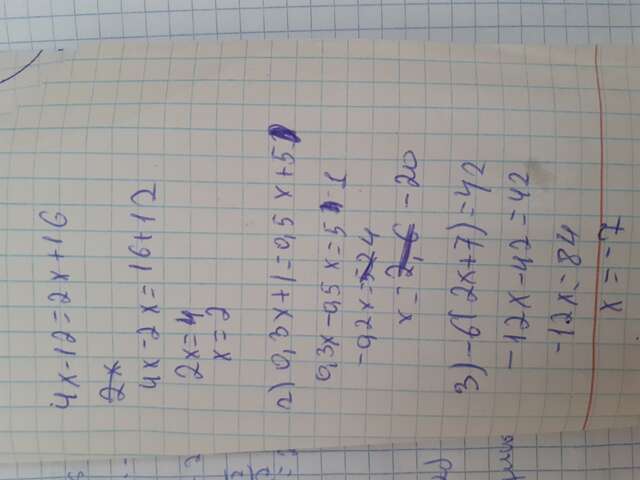 4x-12=2x+16
2x
4x-2x=16+12
2x=4
x=2
2) 0,3x+1=0,5x+5
0,3x-0,5x=5-1
-0,2x=4
x= -20
3) -6(2x+7)=42
-12x-42=42
-12x=84
x=-7